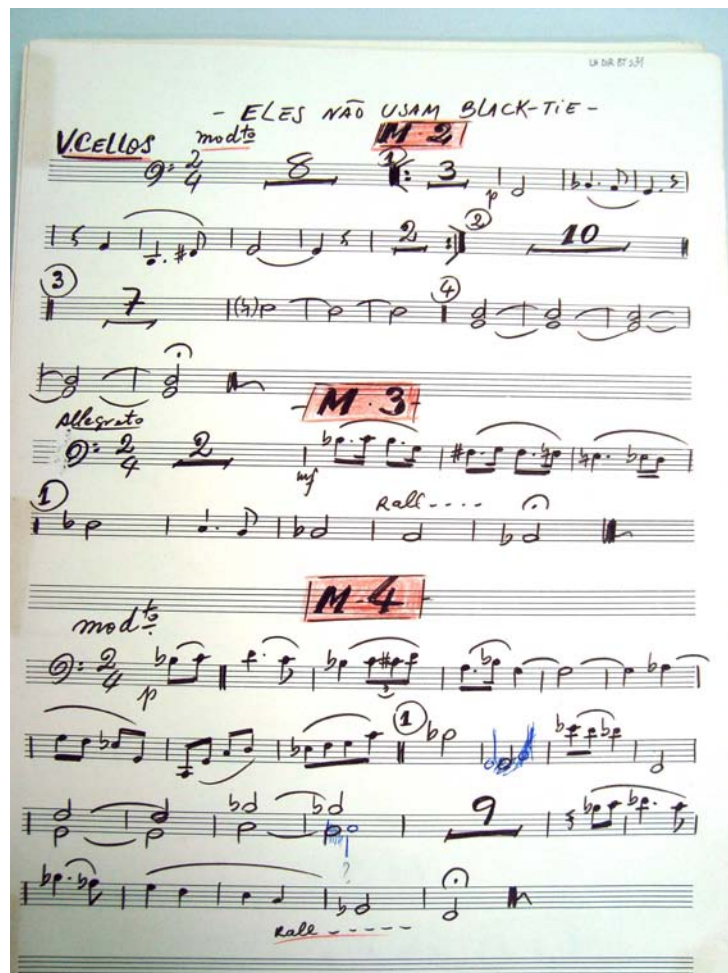 - ELES NÃO USAM BLACK-TIE -
V.CELLOS modto M-2
2 4 8 1 3
p
2 2 10
3 7 4
M-3
Allegreto
2 4 2
mf
1 Rall----
M-4
modto
2 4
p
3
1
9
?
Rall -----